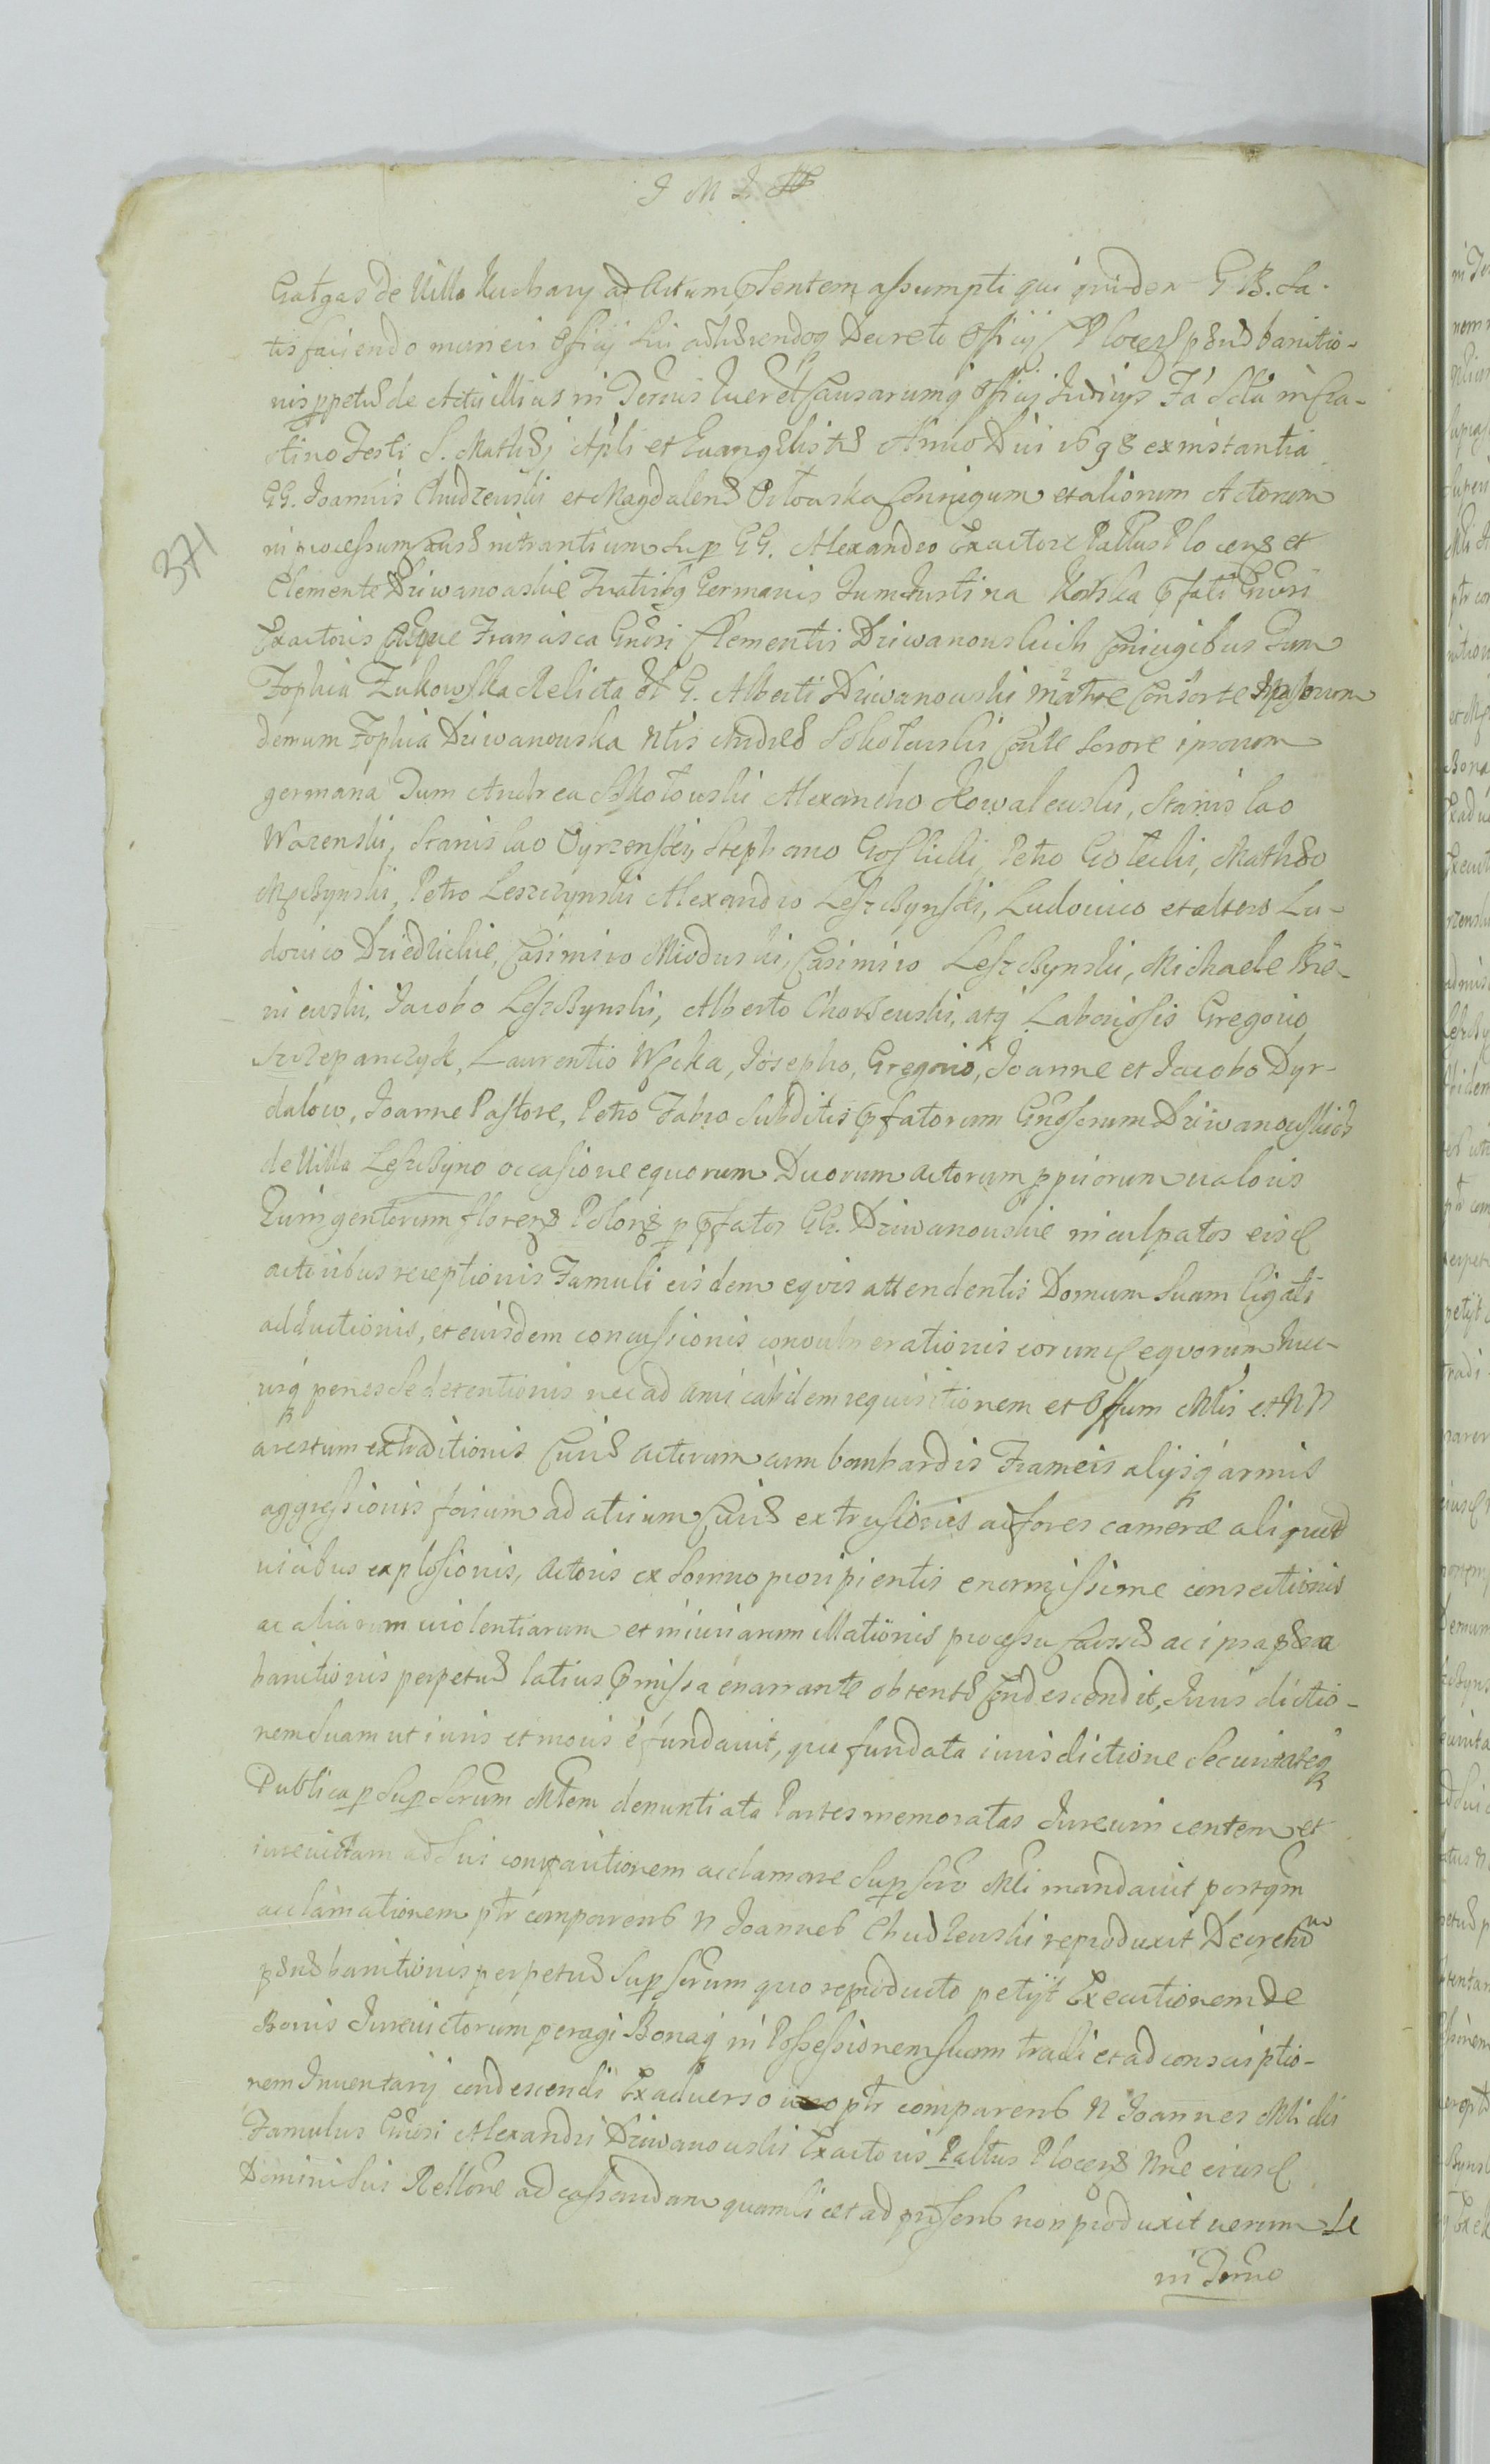 J M J
Gatgas de Villa Kuchary ad Actum pntem assumpti qui quidem G B. Sa-
tisfaciendo muneri Officij sui adhærendoq Decreto Officij Plocen pænæ banitio-
nis ppetuæ de Actu illius in Termis Querel Causarumq Officij Judicijs Fa Scda in Cra-
stino Festi S. Mathæi Apli et Euangelistæ Anno Dni 1698 ex instantia
GG. Joannis Chudzewski et Magdalenæ Orłowska Conjugum et aliorum Actorum
in processum Causæ intrantium sup GG. Alexandro Exactore Pallus Plocens et
Clemente Dziwanowskie Fratribq Germanis Tum Justina Korska pfati Gnosi
Exactoris Francisca Gnosi Clementis Dziwanowskich Conjugibus Tum
Zophia Zukowska Relicta ol G. Alberti Dziwanowski matre Consorte Ipsorum
demum Zophia Dziwanowska Nlis Andreæ Sokołowski Conte sorore ipsorum
germana Tum Andrea Sokołowski Alexandro Kowalewski, Stanislao
Wazenski, Stanislao Oyrzenski, Stephano Goslicki, Petro Gotecki, Mathæo
Petro Leszczynski Alexandro Leszczynski, Ludovico et altero Lu-
dovico Dziedzickie, Casimiro Mioduski, Casimiro Leszczynski, Michaele Bro-
niewski, Jacobo Leszczynski, Alberto Chodzewski, atq Laboriosis Gregorio
Szczepanczyk, Laurentio Wycka, Josepho, Gregorio, Joanne et Jacobo Dyr-
dalow, Joanne Pastore, Petro Fabro Subditis pfatorum Gnosorum Dziwanowskich
de Villa Leszczyno occasione equorum Duorum actorum ppriorum ualoris
Quingentorum florens Polons p pfatos GG. Dziwanowskie inculpatos eisd
actoribus receptionis Famuli eisdem equis attendentis Domum suam ligati
adductionis, et eiusdem concussionis conuulnerationis eorund equorum huc-
usq penes se detentionis nec ad amicabilem requisitionem et Offium Mlis et NN
arestum extraditionis Curiæ actorum cum bombardis Frameis alijsq armis
aggressionis forium ad atrium Curiæ extrusionis ad fores cameræ aliquot
uicibus explosionis, Actoris ex somno proripientis enormissime consectionis
ac aliarum uiolentiarum et iniuriarum illationis processu Causæ ac ipsa pæna
banitionis perpetuæ latius pmissa enarrante obtentæ Condescendit, Jurisdictio-
nem suam ut iuris et moris e fundauit, qua fundata iurisdictione securitateq
Publica p sup scrum Mlem denuntiata Partes memoratas Jureuincentem et
iureuictam ad sui compartionem acclamare sup scro Mli mandauit post qm
acclamationem ptr comparens N Joannes Chudzewski reproduxit Decretum
pænæ banitionis perpetuæ sup scrum quo reproducto petijt Executionem de
Bonis Jureuictorum peragi Bonaq in Possessionem suam tradi et ad conscriptio-
nem Inuentarij condescendi Ex aduerso ptr comparens N Joannes Mlicki
Famulus Gnosi Alexandri Dziwanowski Exactoris Paltus Plocens Nne eiusd
Domini sui Rellone ad cassandam quamlicet ad prsens non produxit uerum se
in Termo
371